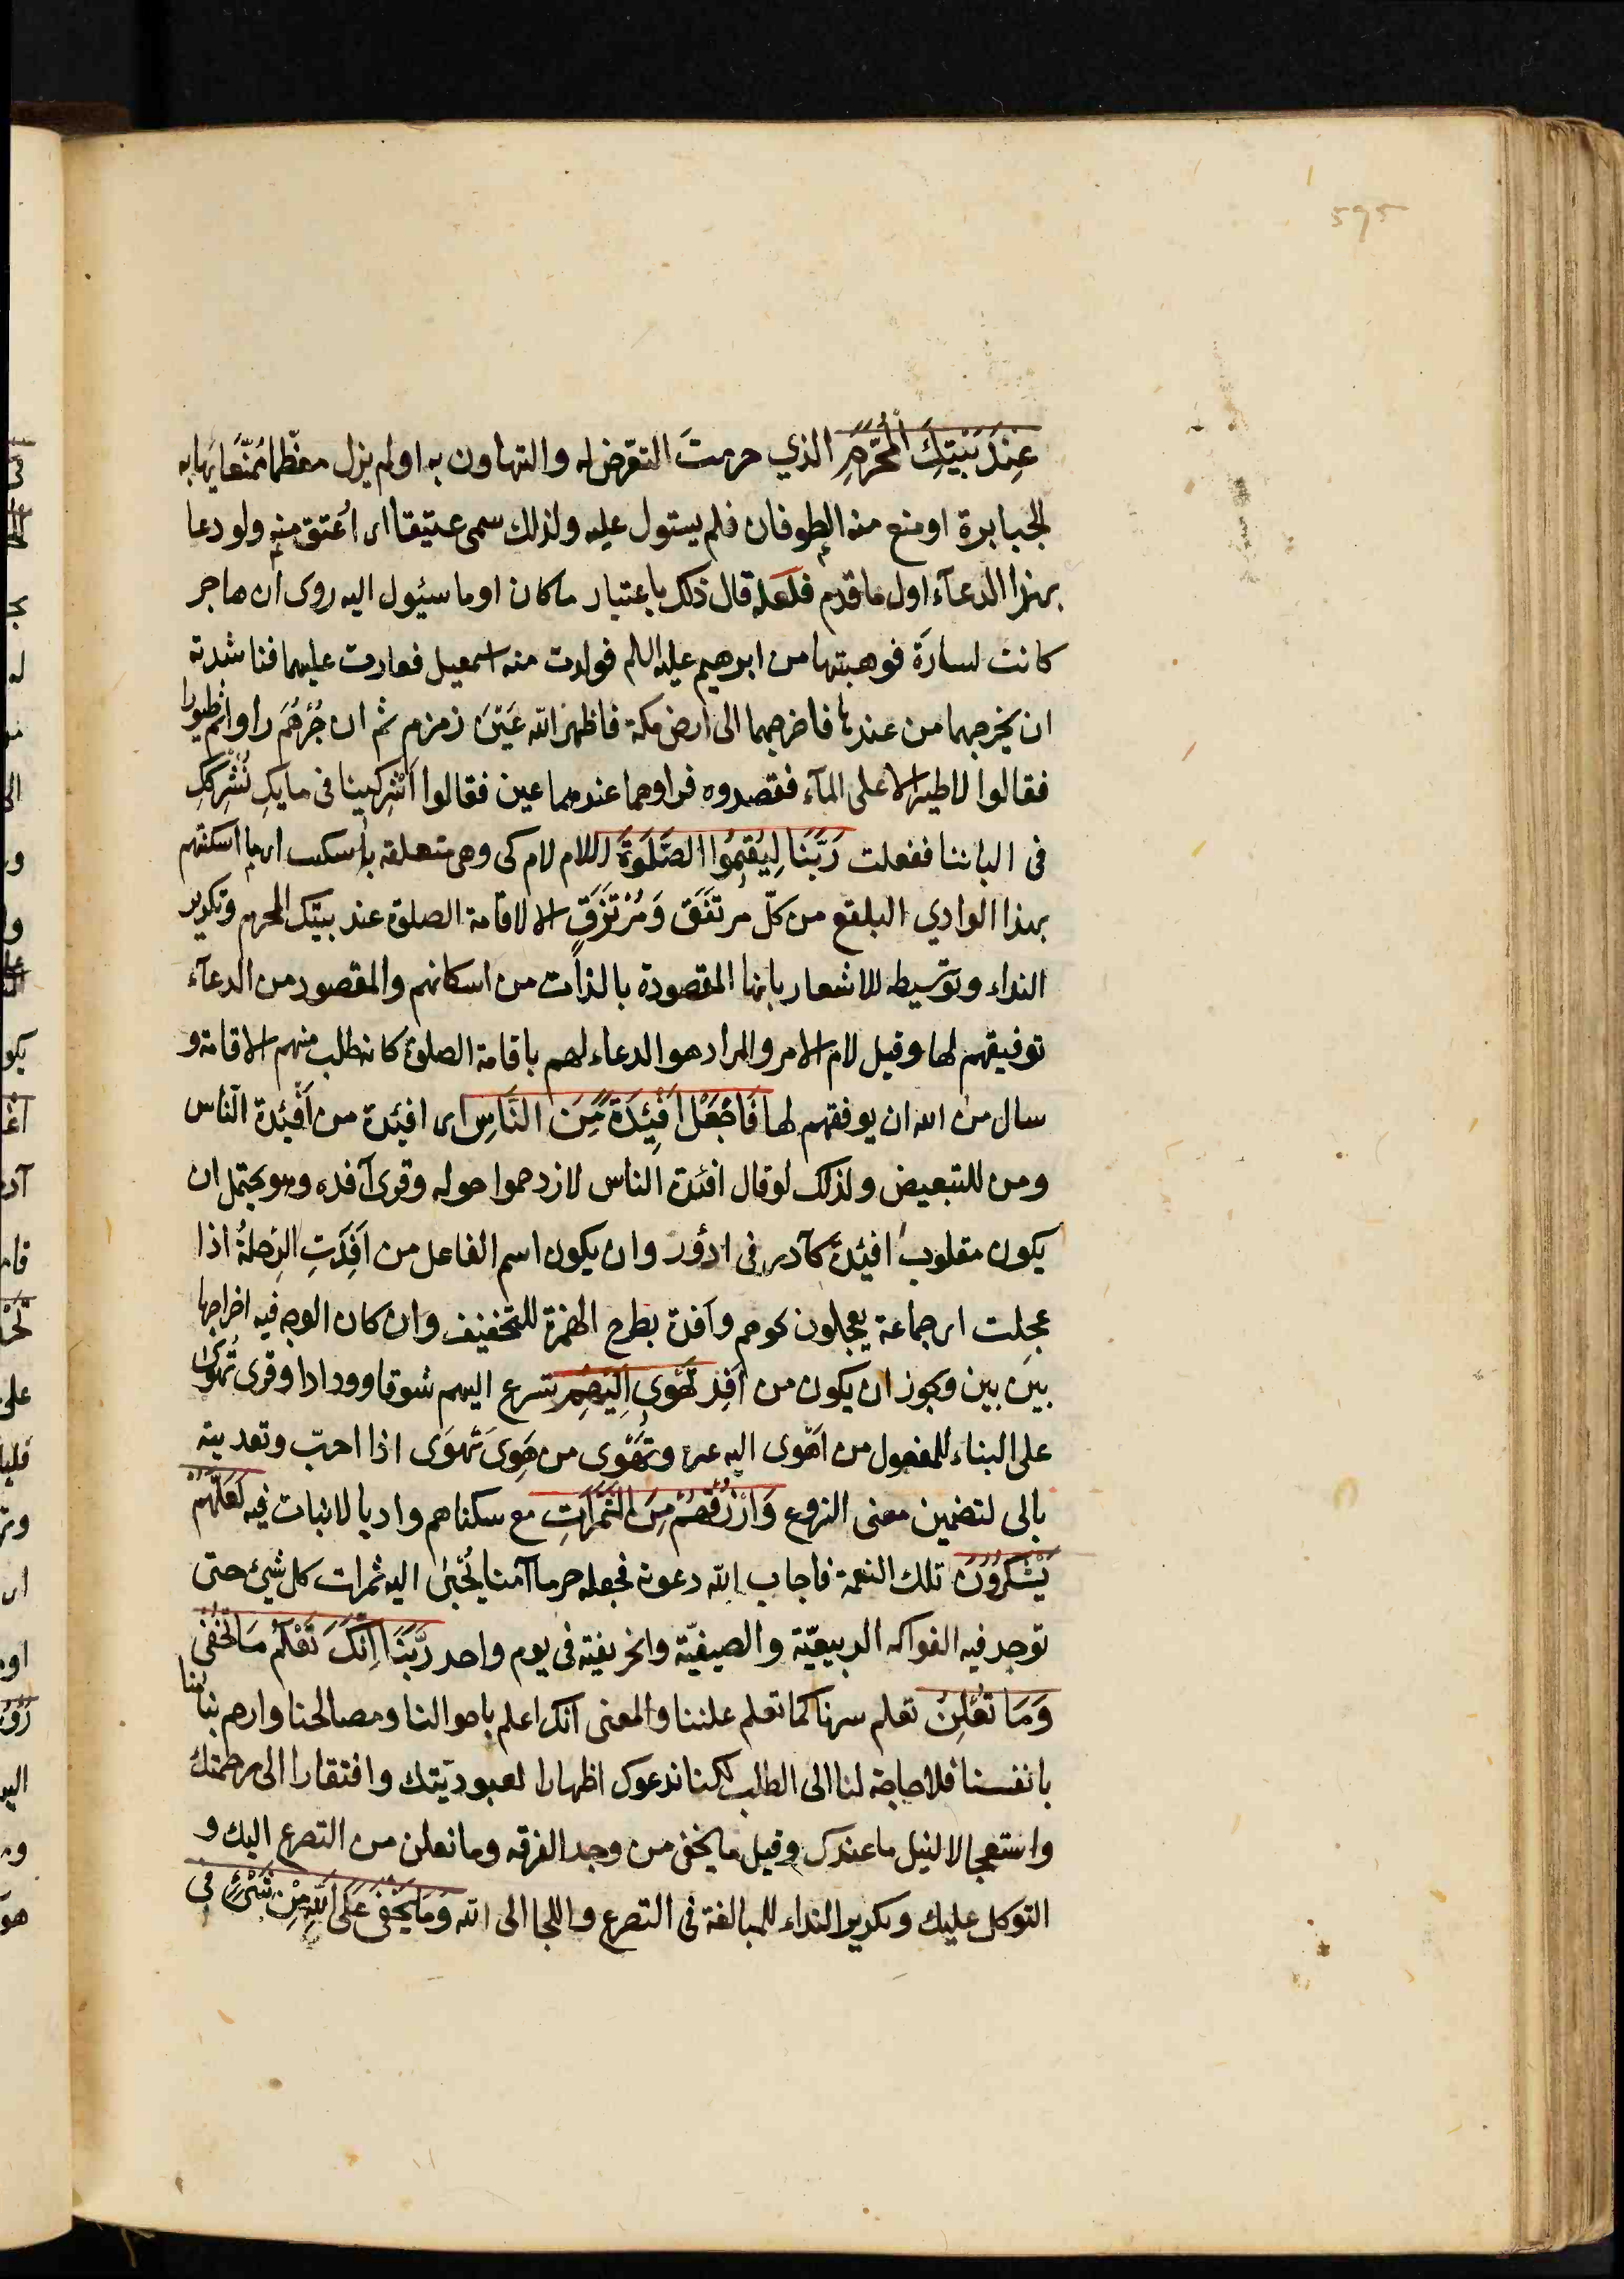 595
عِنْدَ بَيْتِكَ الْمُحَرَّمِ الذي حرمتَ التعرض له والتهاون به او لم يزل معظّما مُمَنَّعا يهابه
الجبابرة او منع منه الطوفان فلم يستول عليه ولذلك سمى عتيقا اى اُعتق منه ولو دعا
بهذا الدعآء اول ما قدم فلعله قال ذلك باعتبار ما كان او ما سيئول اليه روى ان هاجر
كانت لسارَة فوهبتها من ابرهيم عليه اللم فولدت منه اسمعيل فغارت عليهما فناشدته
ان يخرجهما من عندها فاخرجهما الى ارض مكة فاظهر الله عَيْنَ زمزم ثم ان جُرْهُمَ راوا ثم طيورا
فقالوا لا طير الا على المآء فقصدوه فراوهما عندهما عين فقالوا اَشْرِكينا فى مايكِ نُشْرِككِ
فى الباننا ففعلت رَبَّنَا لِيُقِيمُوا الصَّلَوةَ اللام لام كى وهى متعلقه باسكنت اى ما اسكنتهم
بهذا الوادي البلقع من كلّ مرتَفَق وَمُرْتَزَقٍ الا لاقامة الصلوة عند بيتك المحرم وتكرير
النداء وتوسيطه للاشعار بانها المقصودة بالذات من اسكانهم والمقصود من الدعآء
توفيقهم لها وقيل لام الامر والمراد هو الدعاء لهم باقامة الصلوة كانه طلب منهم الاقامة و
سال من الله ان يوفقهم لها فَاجْعَلْ اَفْئِدَةً مِّنَ النَّاسِ اى افئدة من اَفْئِدة النّاس
ومن للتبعيض ولذلك لو قال افئدة الناس لازدحموا حوله وقرى آفدة وهو يحتمل ان
يكون مقلوب افئدة كآدر فى ادؤر وان يكون اسم الفاعل من اَفِدَتِ الرِحلةُ اذا
عجِلت اى جماعة يعجلون نحوهم واَفدة بطرح الهمزة للتخفيف وان كان الوجه فيه اخراجها
بين بين ويجوز ان يكون من اَفِدَ تَهْوِى اِلَيْهِمْ تسرع اليهم شوقا وودادا وقرى تُهْوَى
على البناء للمفعول من اَهْوى اليه غيره وتَهْوَى من هَوِىَ تَهوَى اذا احبّ وتعديته
بالى لتضمين معنى النزوع وَارْزُقْهُمْ مِنَ الثَّمَرَاتِ مع سكناهم واديا لا نبات فيه لَعَلَّهُمْ
يَشْكُرُونَ تلك النعمة فاجاب الله دعوته فجعله حرما آمنا يُجْبَى اليه ثمرات كل شيئ حتى
توجد فيه الفواكه الربيعيّة والصيفيّة والخريفية فى يوم واحد رَبَّنَا اِنَّكَ تَعْلَمُ مَا نُخْفِى
وَمَا نُعْلِنُ تعلم سرنا كما تعلم علننا والمعنى انك اعلم باحوالنا ومصالحنا وارحم بنا منا
بانفسنا فلا حاجة لنا الى الطلب لكنا ندعوك اظهارا لعبوديّتك وافتقارا الى رحمتك
واستعجالا لنيل ما عندك وقيل ما نخفى من وجد الفرقه وما نعلن من التضرع اليك و
التوكل عليك وتكرير النداء للمبالغة فى التضرع واللجا الى الله وَمَا يَخْفَى عَلَى اللّهِ مِنْ شَىْءٍ فِى